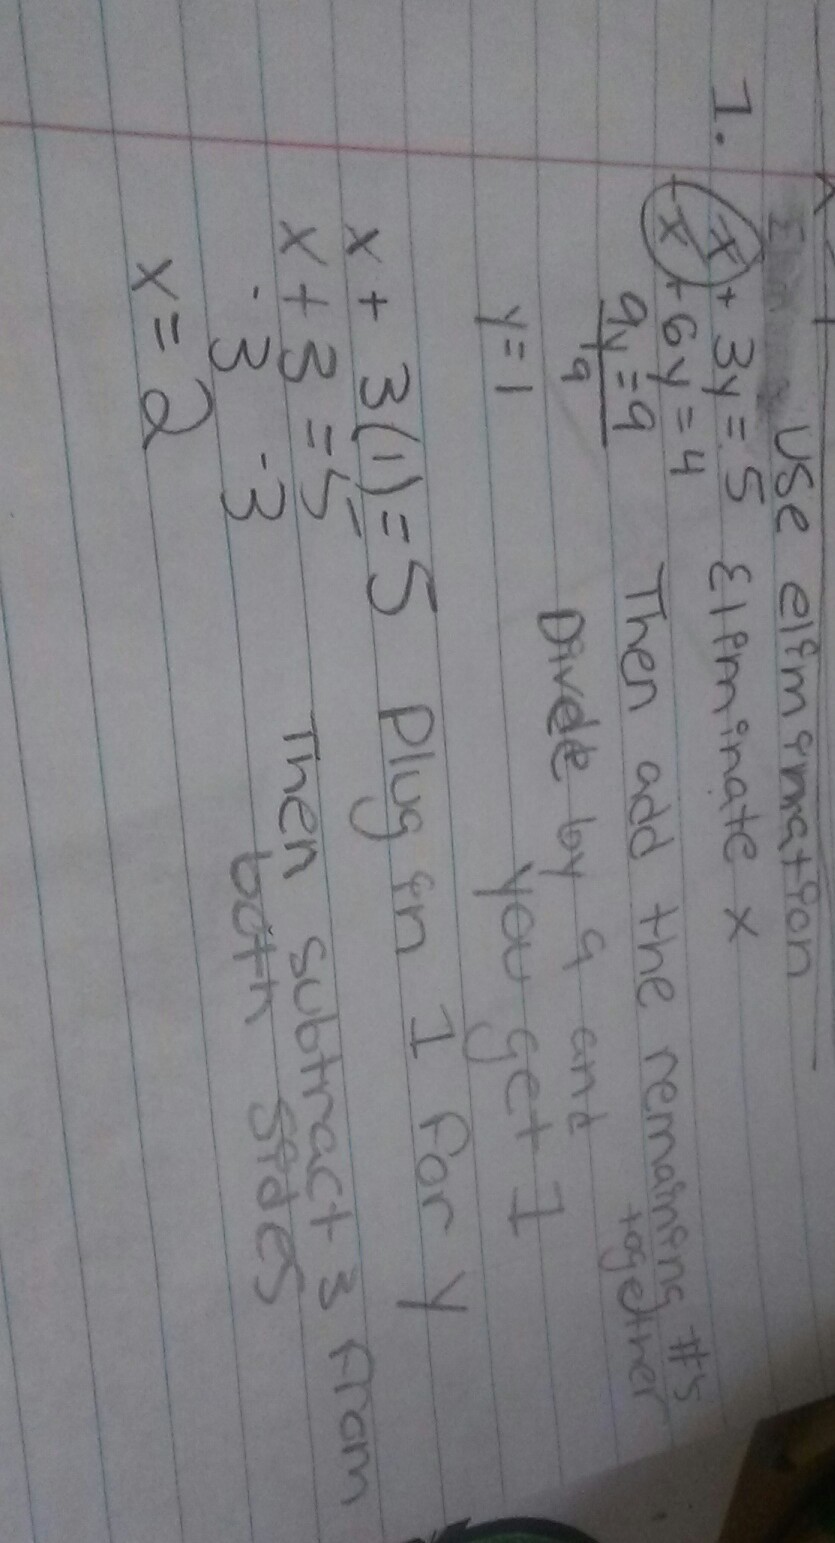 Use elimination
1. x + 3y = 5 Eliminate x
-x + 6y = 4
9y = 9 Then add the remaining #s
together
9 Divide by 9 and
y = 1 you get 1
x + 3(1) = 5 Plug in 1 for y
x + 3 = 5 Then subtract 3 from
-3 -3 both sides
x = 2